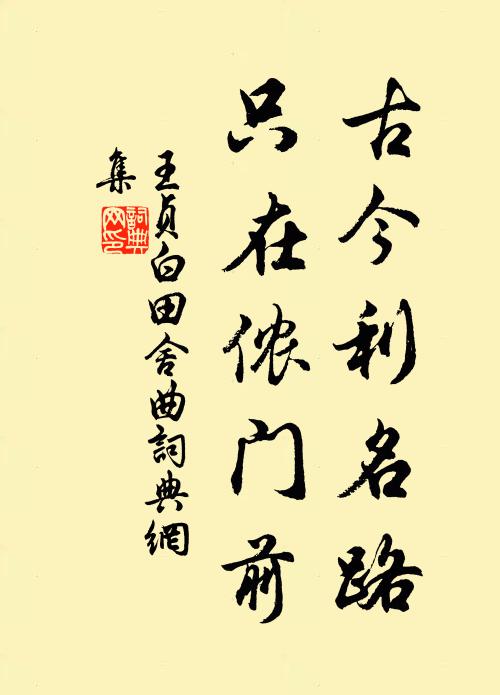 古今利名路
只在侬门前
王贞白田舍曲詞典網
集
詞典
网印